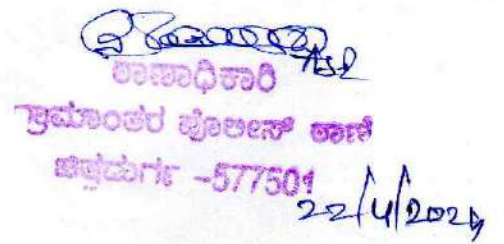 ಠಾಣಾಧಿಕಾರಿ
ಗ್ರಾಮಾಂತರ ಪೊಲೀಸ್ ಠಾಣೆ
ಚಿತ್ರದುರ್ಗ -577501
22/4/2024